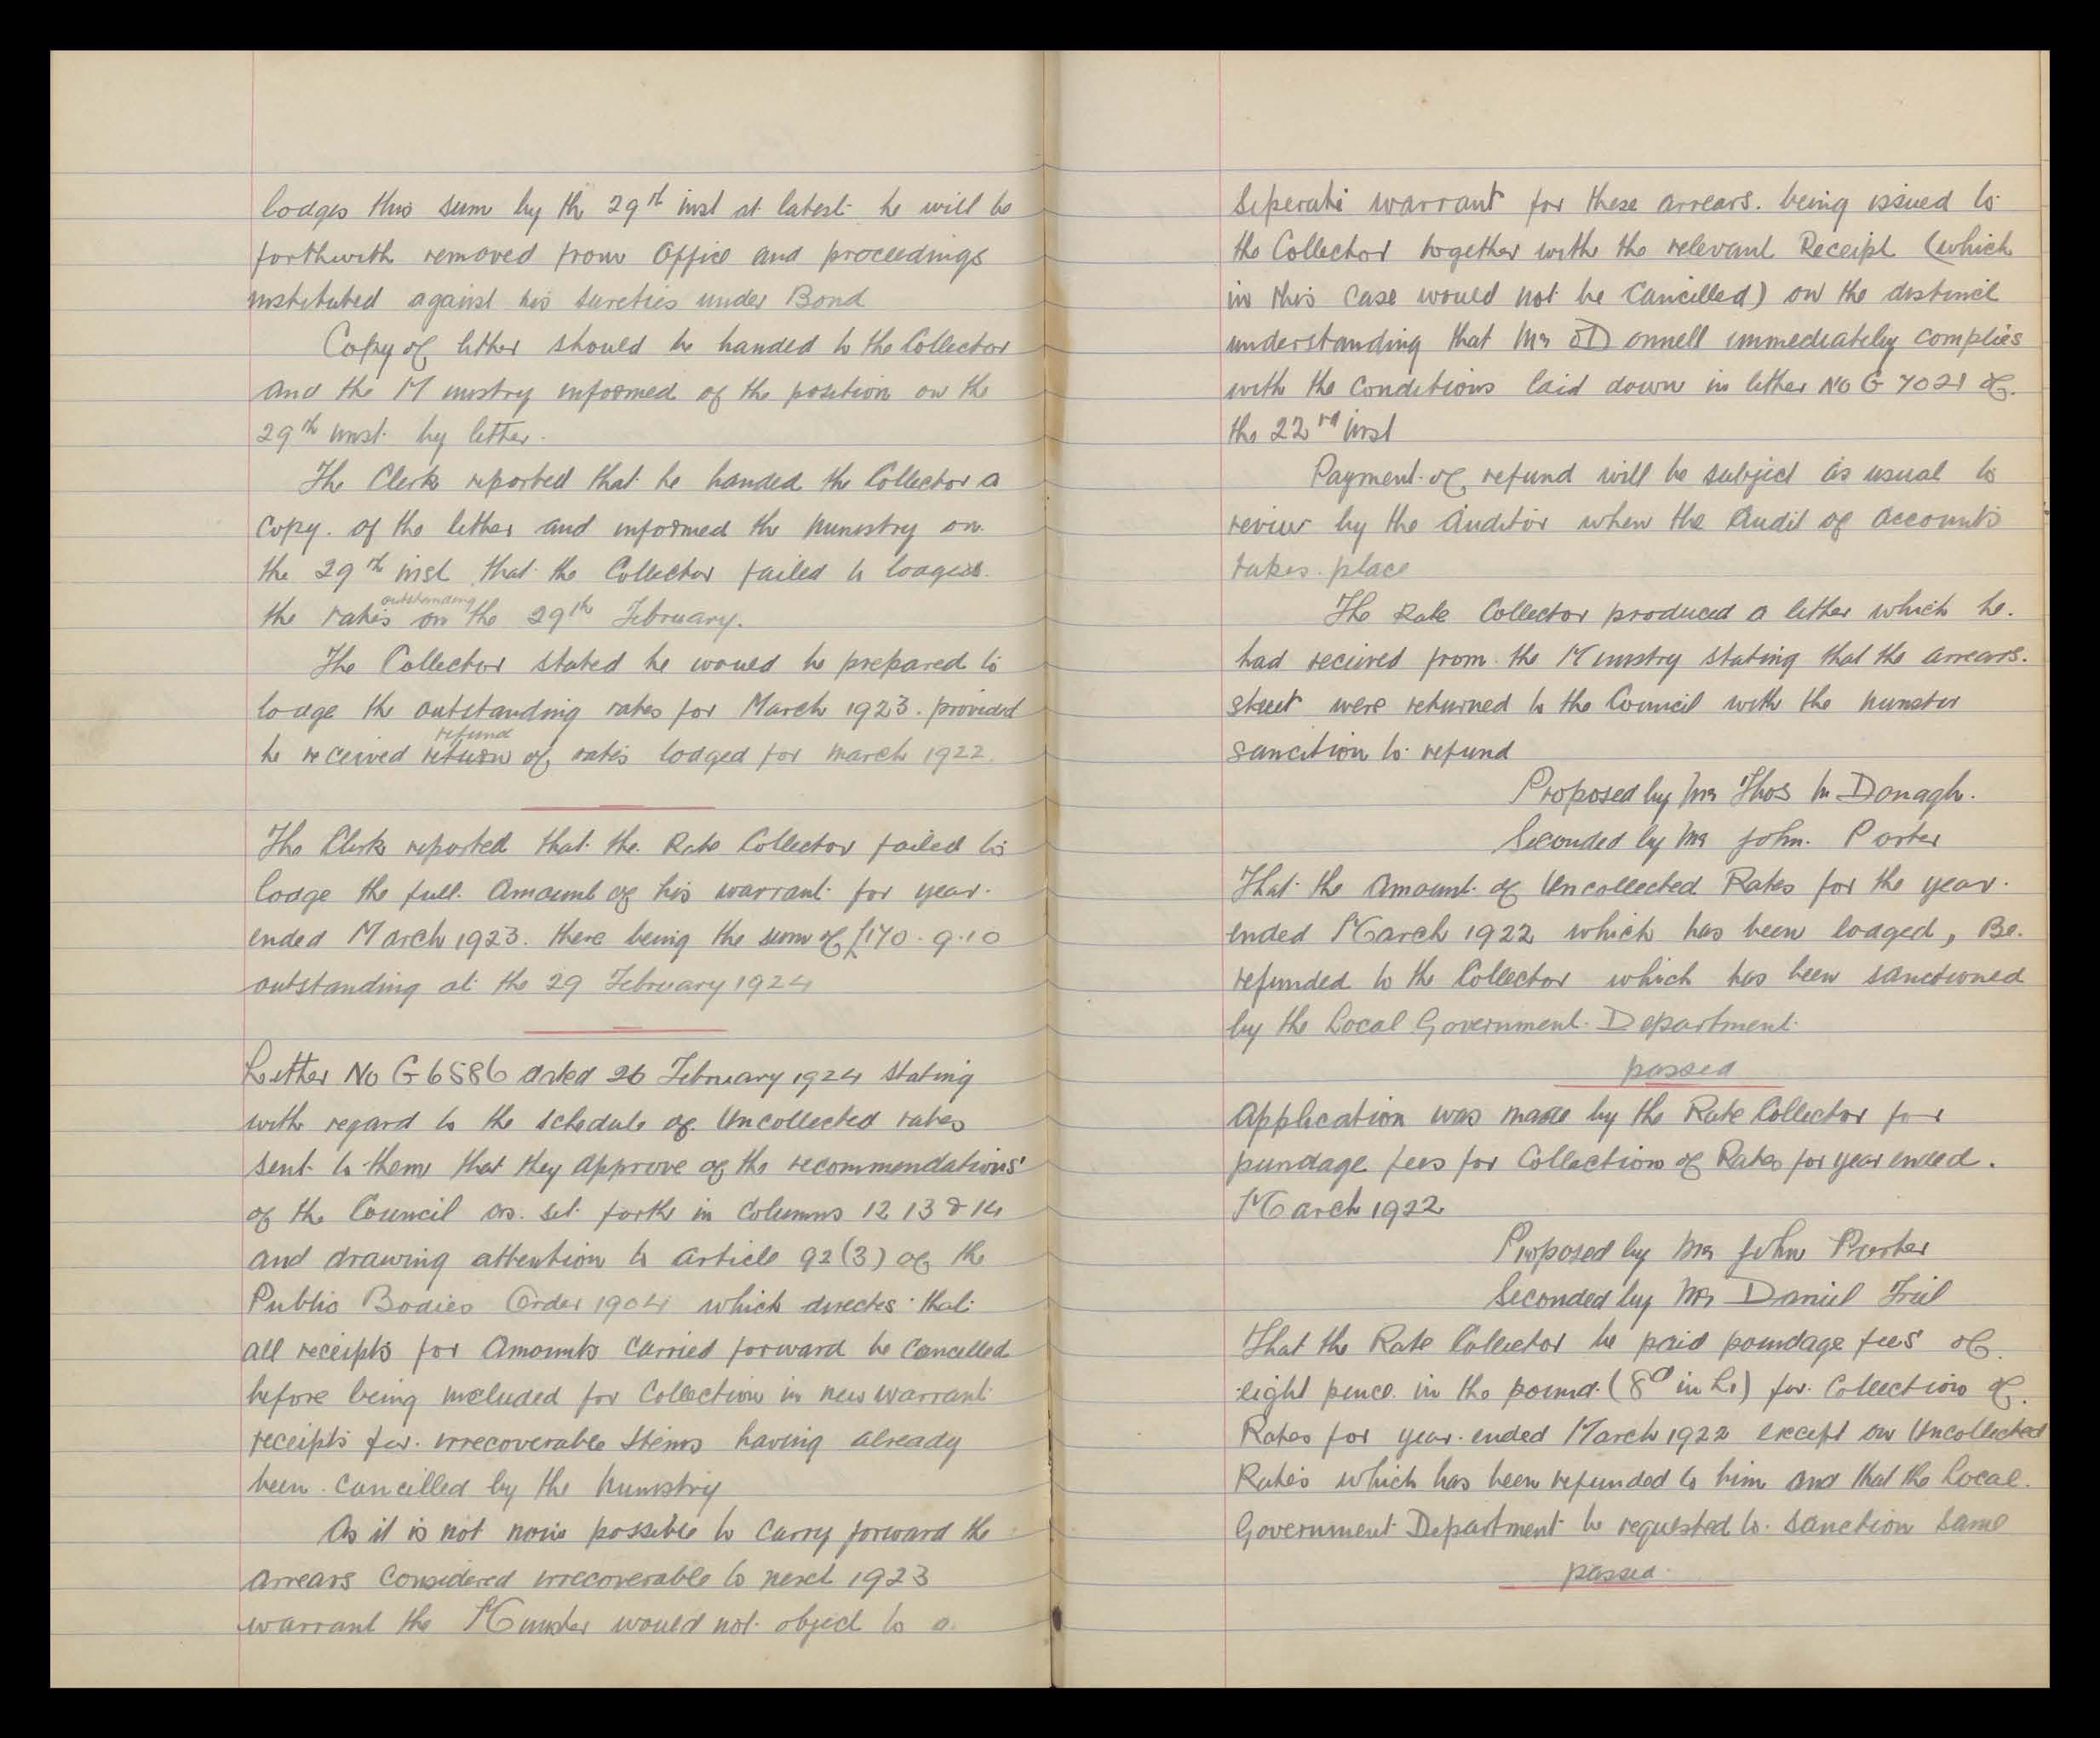 lodges this sum by the 29th inst at latest he will be
forthwith removed from Office and proceedings
instituted against his sureties under Bond
Copy of letter should be handed to the Collector
and the Ministry informed of the position on the
29th inst. by letter.
The Clerk reported that he handed the Collector a
copy. of the letter and informed the Ministry on.
the 29th inst that the Collector failed to
outstanding
the rates on the 29th February.
The Collector stated he would be prepared to
lodge the outstanding rates for March 1923. provided
refund
he received return of rates lodged for March 1922.
The Clerk reported that the Rate Collector failed to
lodge the full. Amount of his warrant for year.
ended March 1923. there being the sum of £170.9.10
outstanding at the 29 February 1924
Letter No G6586 dated 26 February 1924 stating
with regard to the schedule of Uncollected rates
sent to them that they approve of the recommendations
of the Council as. set forth in Columns 12 13 & 14
and drawing attention to article 92(3) of the
Public Bodies Order 1904 which directes that
all receipts for Amounts Carried forward be Cancelled
before being included for Collection in new warrant
receipts for. irrecoverable Items having already
been cancelled by the Ministry
As it is not now possible to Carry forward the
arrears Considered irrecoverable to next 1923
warrant the Minister would not object to a.
Seperate warrant for these arrears. being issued to
the Collector together with the relevant Receipt (which
in this Case would not be Cancelled) on the distinct
understanding that Mr O'Donnell immediately complies
with the Conditions laid down in letter No G 7021 of.
the 22nd inst
Payment of refund will be subject as usual to
review by the Auditor when the Audit of accounts
takes. place
The Rate Collector produced a letter which he.
had recieved from. the Ministry stating that the arrears.
sheet were returned to the Council with the Minster
sancition to refund
Proposed by Mr Thos Mc Donagh.
Seconded by Mr John. Porter
That the Amount of Uncollected Rates for the year.
ended March 1922 which has been lodged, Be.
refunded to the Collector which has been sanctioned
by the Local Government Department.
passed
Application was made by the Rate Collector for
pundage fees for Collection of Rates for year ended.
March 1922
Proposed by Mr John Porter
Seconded by Mr Daniel Friel
That the Rate Collector be paid poundage fees of.
eight pence in the pound. (8d in £1) for. Collection of.
Rates for year. ended March 1922 except on Uncollected
Rates which has been refunded to him and that the Local.
Government Department be requested to. sanction same
passed.